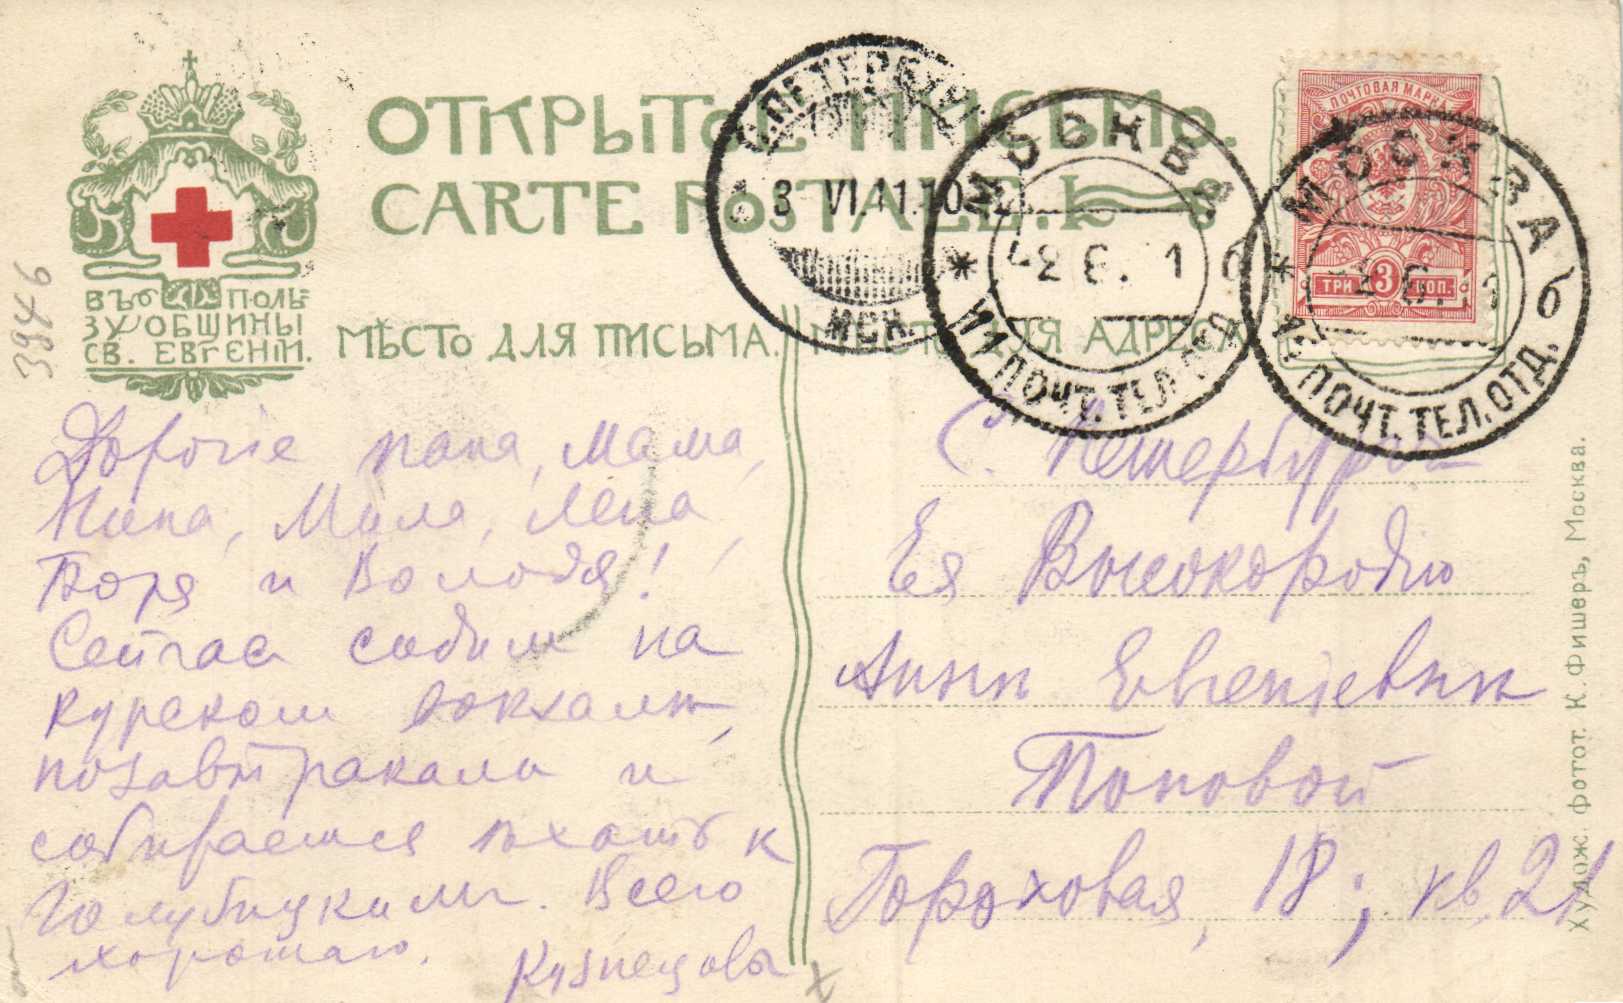 ОТКРЫТОЕ ПИСЬМО.
CARTE POSTALE.
ВЪ ПОЛЬ=
ЗУ ОБЩИНЫ
СВ. ЕВГЕНІИ.
МѢСТО ДЛЯ ПИСЬМА.
МѢСТО ДЛЯ АДРЕСА
С.ПЕТЕРБУРГ
3 VI.11.10
МОСКВА
2 6. 1
ПОЧТ. ТЕЛ. ОТД.
МОСКВА
ПОЧТ. ТЕЛ. ОТД.
ПОЧТОВАЯ МАРКА
ТРИ 3 КОП.
3946
Дорогіе папа, мама,
Нина, Миля, Лена,
Боря и Володя!
Сейчас сидим на
курском вокзалѣ,
позавтракали и
собираемся ѣхать к
Голубицким. Всего
хорошаго. Кузнецовы
С. Петербург
Ея Высокородію
Аннѣ Евгеніевнѣ
Поповой
Гороховая, 18; кв. 21
Худож. фотот. К. Фишеръ, Москва.